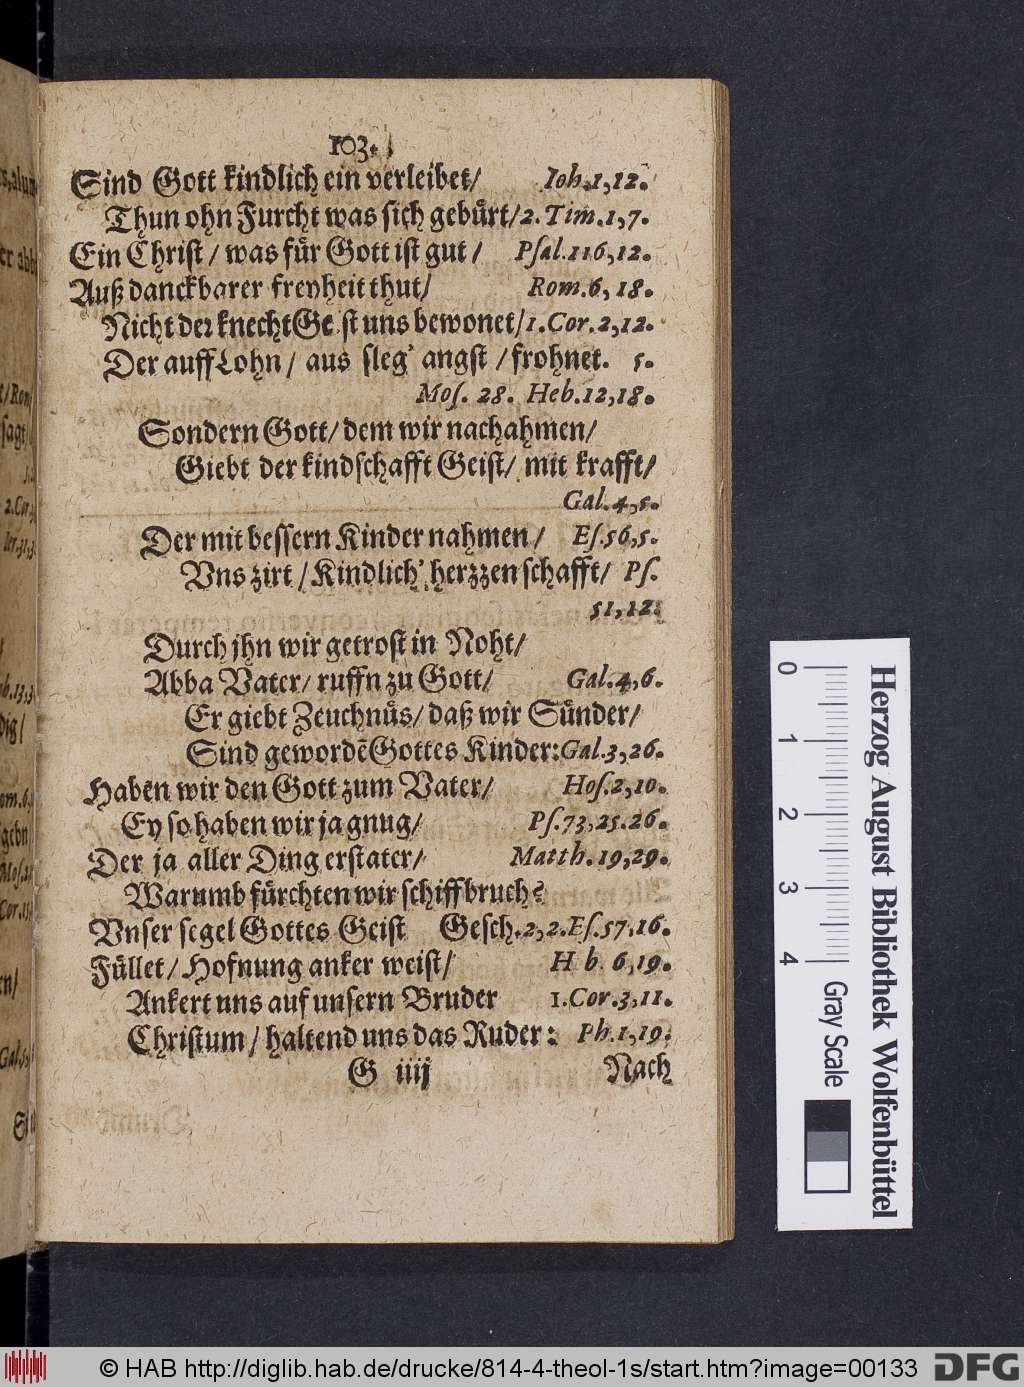 103.
Sind Gott kindlich ein verleibet/ Joh.1,12.
Thun ohn Furcht was sich gebürt/ 2. Tim.1,7.
Ein Christ / was für Gott ist gut / Psal.116,12.
Auß danckbarer freyheit thut/ Rom.6,18.
Nicht der knecht Ge st uns bewonet/ 1.Cor.2,12.
Der auff Lohn / aus sleg' angst / frohnet. 5.
Mos. 28. Heb.12,18.
Sondern Gott/ dem wir nachahmen/
Giebt der kindschafft Geist/ mit krafft/
Gal.4,5.
Der mit bessern Kinder nahmen / Es.56,5.
Vns zirt / Kindlich' herzzen schafft/ Ps.
51,12.
Durch jhn wir getrost in Noht/
Abba Vater/ ruffn zu Gott/ Gal.4,6.
Er giebt Zeuchnüs/ daß wir Sünder/
Sind gewordē Gottes Kinder: Gal.3,26.
Haben wir den Gott zum Vater/ Hos.2,10.
Ey so haben wir ja gnug/ Ps.73,25.26.
Der ja aller Ding erstater/ Matth.19,29.
Warumb fürchten wir schiffbruch?
Vnser segel Gottes Geist Gesch.2,2.Es.57,16.
Füllet/ Hofnung anker weist/ H b. 6,19.
Ankert uns auf unsern Bruder 1.Cor.3,11.
Christum / haltend uns das Ruder: Ph.1,19.
G iiij Nach
0 1 2 3 4 Gray Scale
Herzog August Bibliothek Wolfenbüttel
© HAB http://diglib.hab.de/drucke/814-4-theol-1s/start.htm?image=00133
DFG